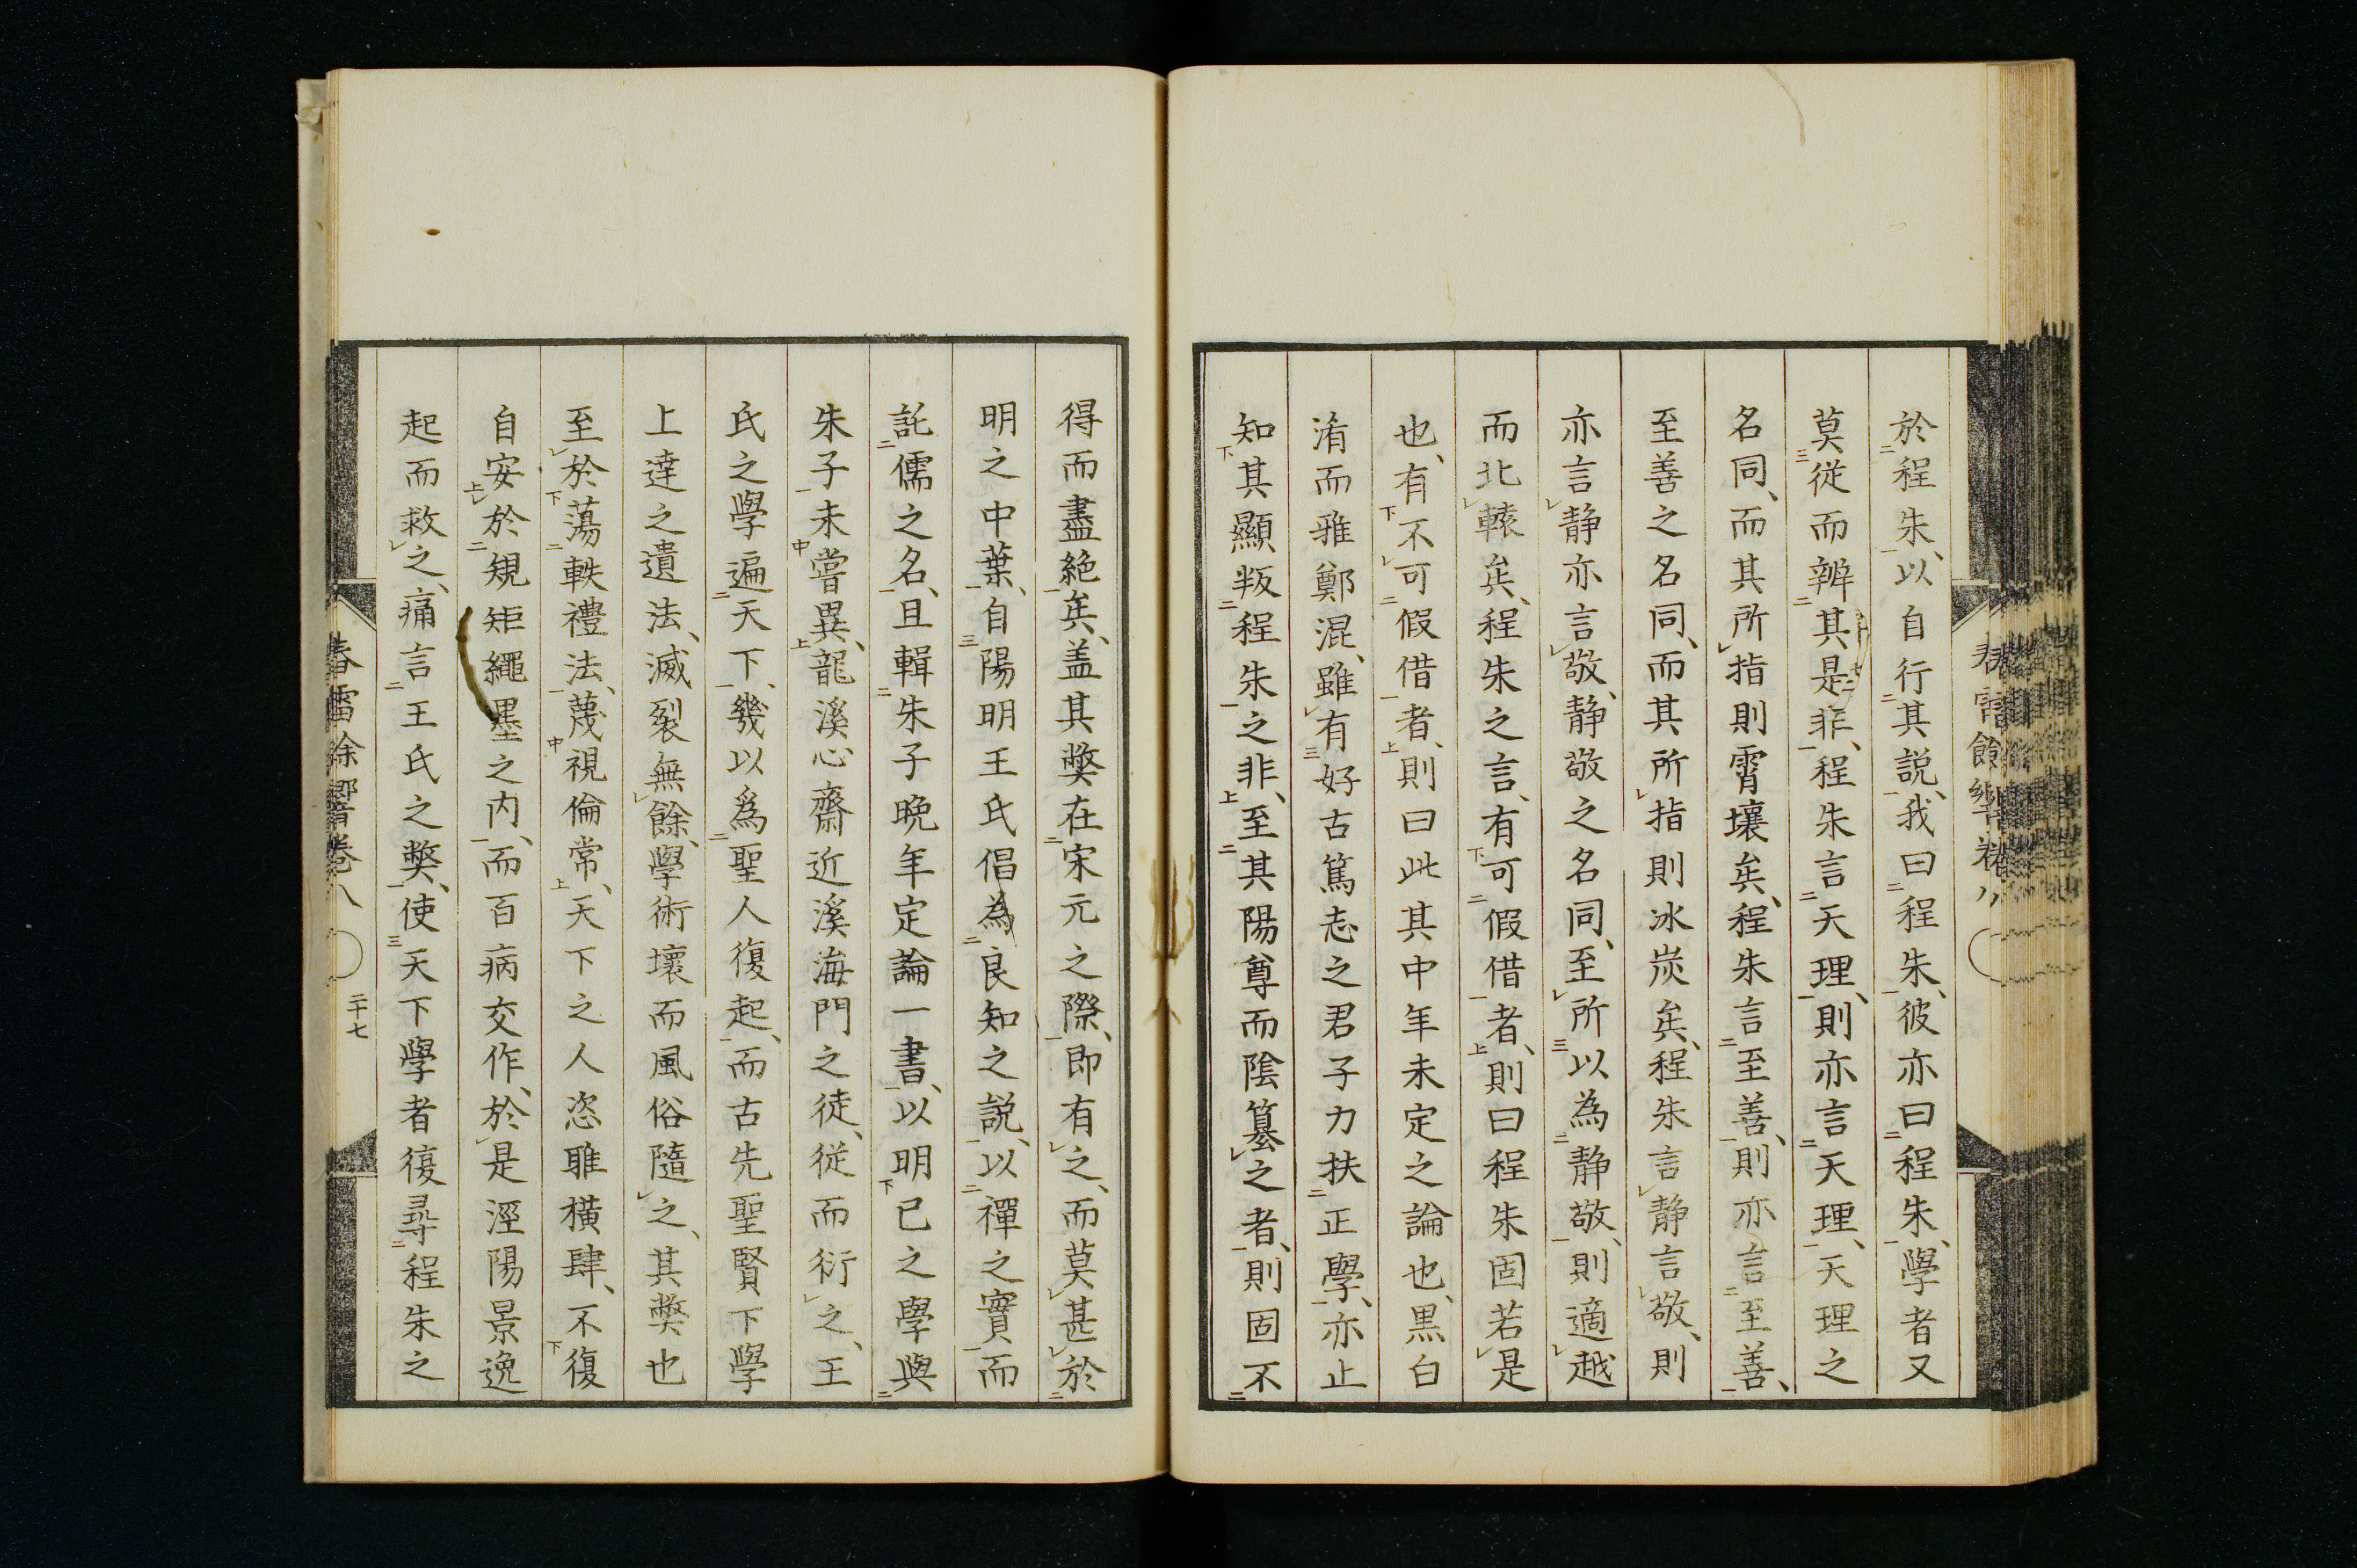 於程朱、以自行其説、我曰程朱、彼亦曰程朱、學者又
莫從而辨其是非、程朱言天理、則亦言天理、天理之
名同、而其所指則霄壤矣、程朱言至善、則亦言至善、
至善之名同、而其所指則冰炭矣、程朱言静言敬、則
亦言静亦言敬、静敬之名同、至所以為静敬、則適越
而北轅矣、程朱之言、有可假借者、則曰程朱固若是
也、有不可假借者、則曰此其中年未定之論也、黒白
淆而雅鄭混、雖有好古篤志之君子力扶正學、亦止
知其顯叛程朱之非、至其陽尊而陰簒之者、則固不
得而盡絶矣、盖其獘在宋元之際、即有之、而莫甚於
明之中葉、自陽明王氏倡為良知之説、以禪之實而
託儒之名、且輯朱子晩年定論一書、以明已之學與
朱子未嘗異、龍溪心齋近溪海門之徒、従而衍之、王
氏之學遍天下、幾以爲聖人復起、而古先聖賢下學
上達之遺法、滅裂無餘、學術壞而風俗隨之、其獘也
至於蕩軼禮法、蔑視倫常、天下之人恣睢横肆、不復
自安於規矩繩墨之内、而百病交作、於是涇陽景逸
起而救之、痛言王氏之獘、使天下學者復尋程朱之
春雷餘響卷八
二十七